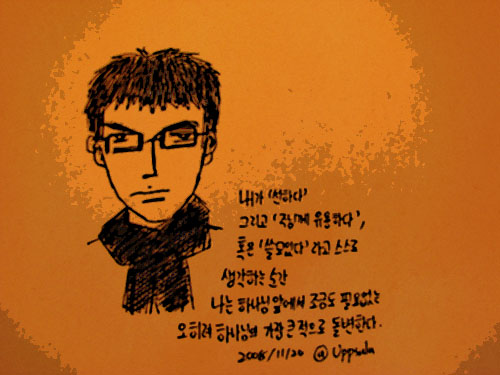 내가 '선하다'
그리고 '주님께 유용하다',
혹은 '쓸모있다' 라고 스스로
생각하는 순간
나는 하나님 앞에서 조금도 필요없는
오히려 하나님의 가장 큰 적으로 돌변한다.
2008/11/20 @ Uppsala